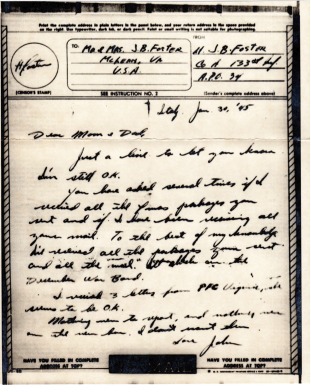 Print the complete address in plain letters in the panel below, and your return address in the space provided
on the right. Use typewriter, dark ink, or dark pencil. Faint or small writing is not suitable for photographing.
FROM
TO:
Mr & Mrs. J.B. Foster
McLean, Va
U.S.A.
Lt. J. B. Foster
Co A 133rd Inf
A.P.O. 34
HFoster
(CENSOR'S STAMP)
SEE INSTRUCTION NO. 2
(Sender's complete address above)
Italy Jan 30, '45
Dear Mom & Dad,
Just a line to let you know
I'm still O.K.
You have asked several times if I
received all the Xmas packages you
sent and if I have been receiving all
your mail. To the best of my knowledge
I've received all the packages you sent
and all the mail. the
December War Bond.
I received 3 letters from PFC Virginia, she
seems to be O.K.
Nothing new to report, and
on the I don't want them
Love John
HAVE YOU FILLED IN COMPLETE
ADDRESS AT TOP?
HAVE YOU FILLED IN COMPLETE
ADDRESS AT TOP?